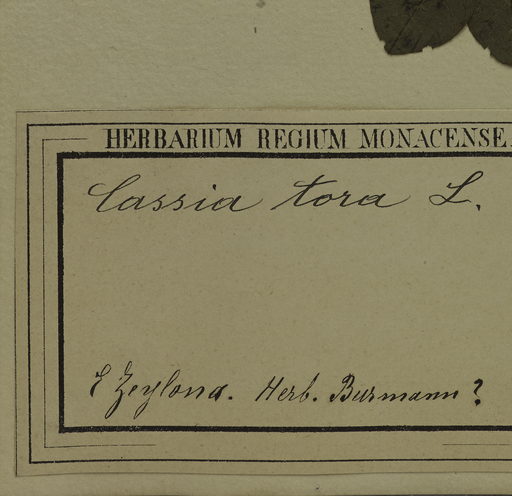 HERBARIUM REGIUM MONACENSE.
Cassia tora L.
E Zeylona. Herb. Burmann?